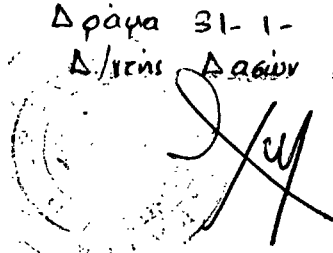 Δράμα 31-1-
Δ/ντής Δασών